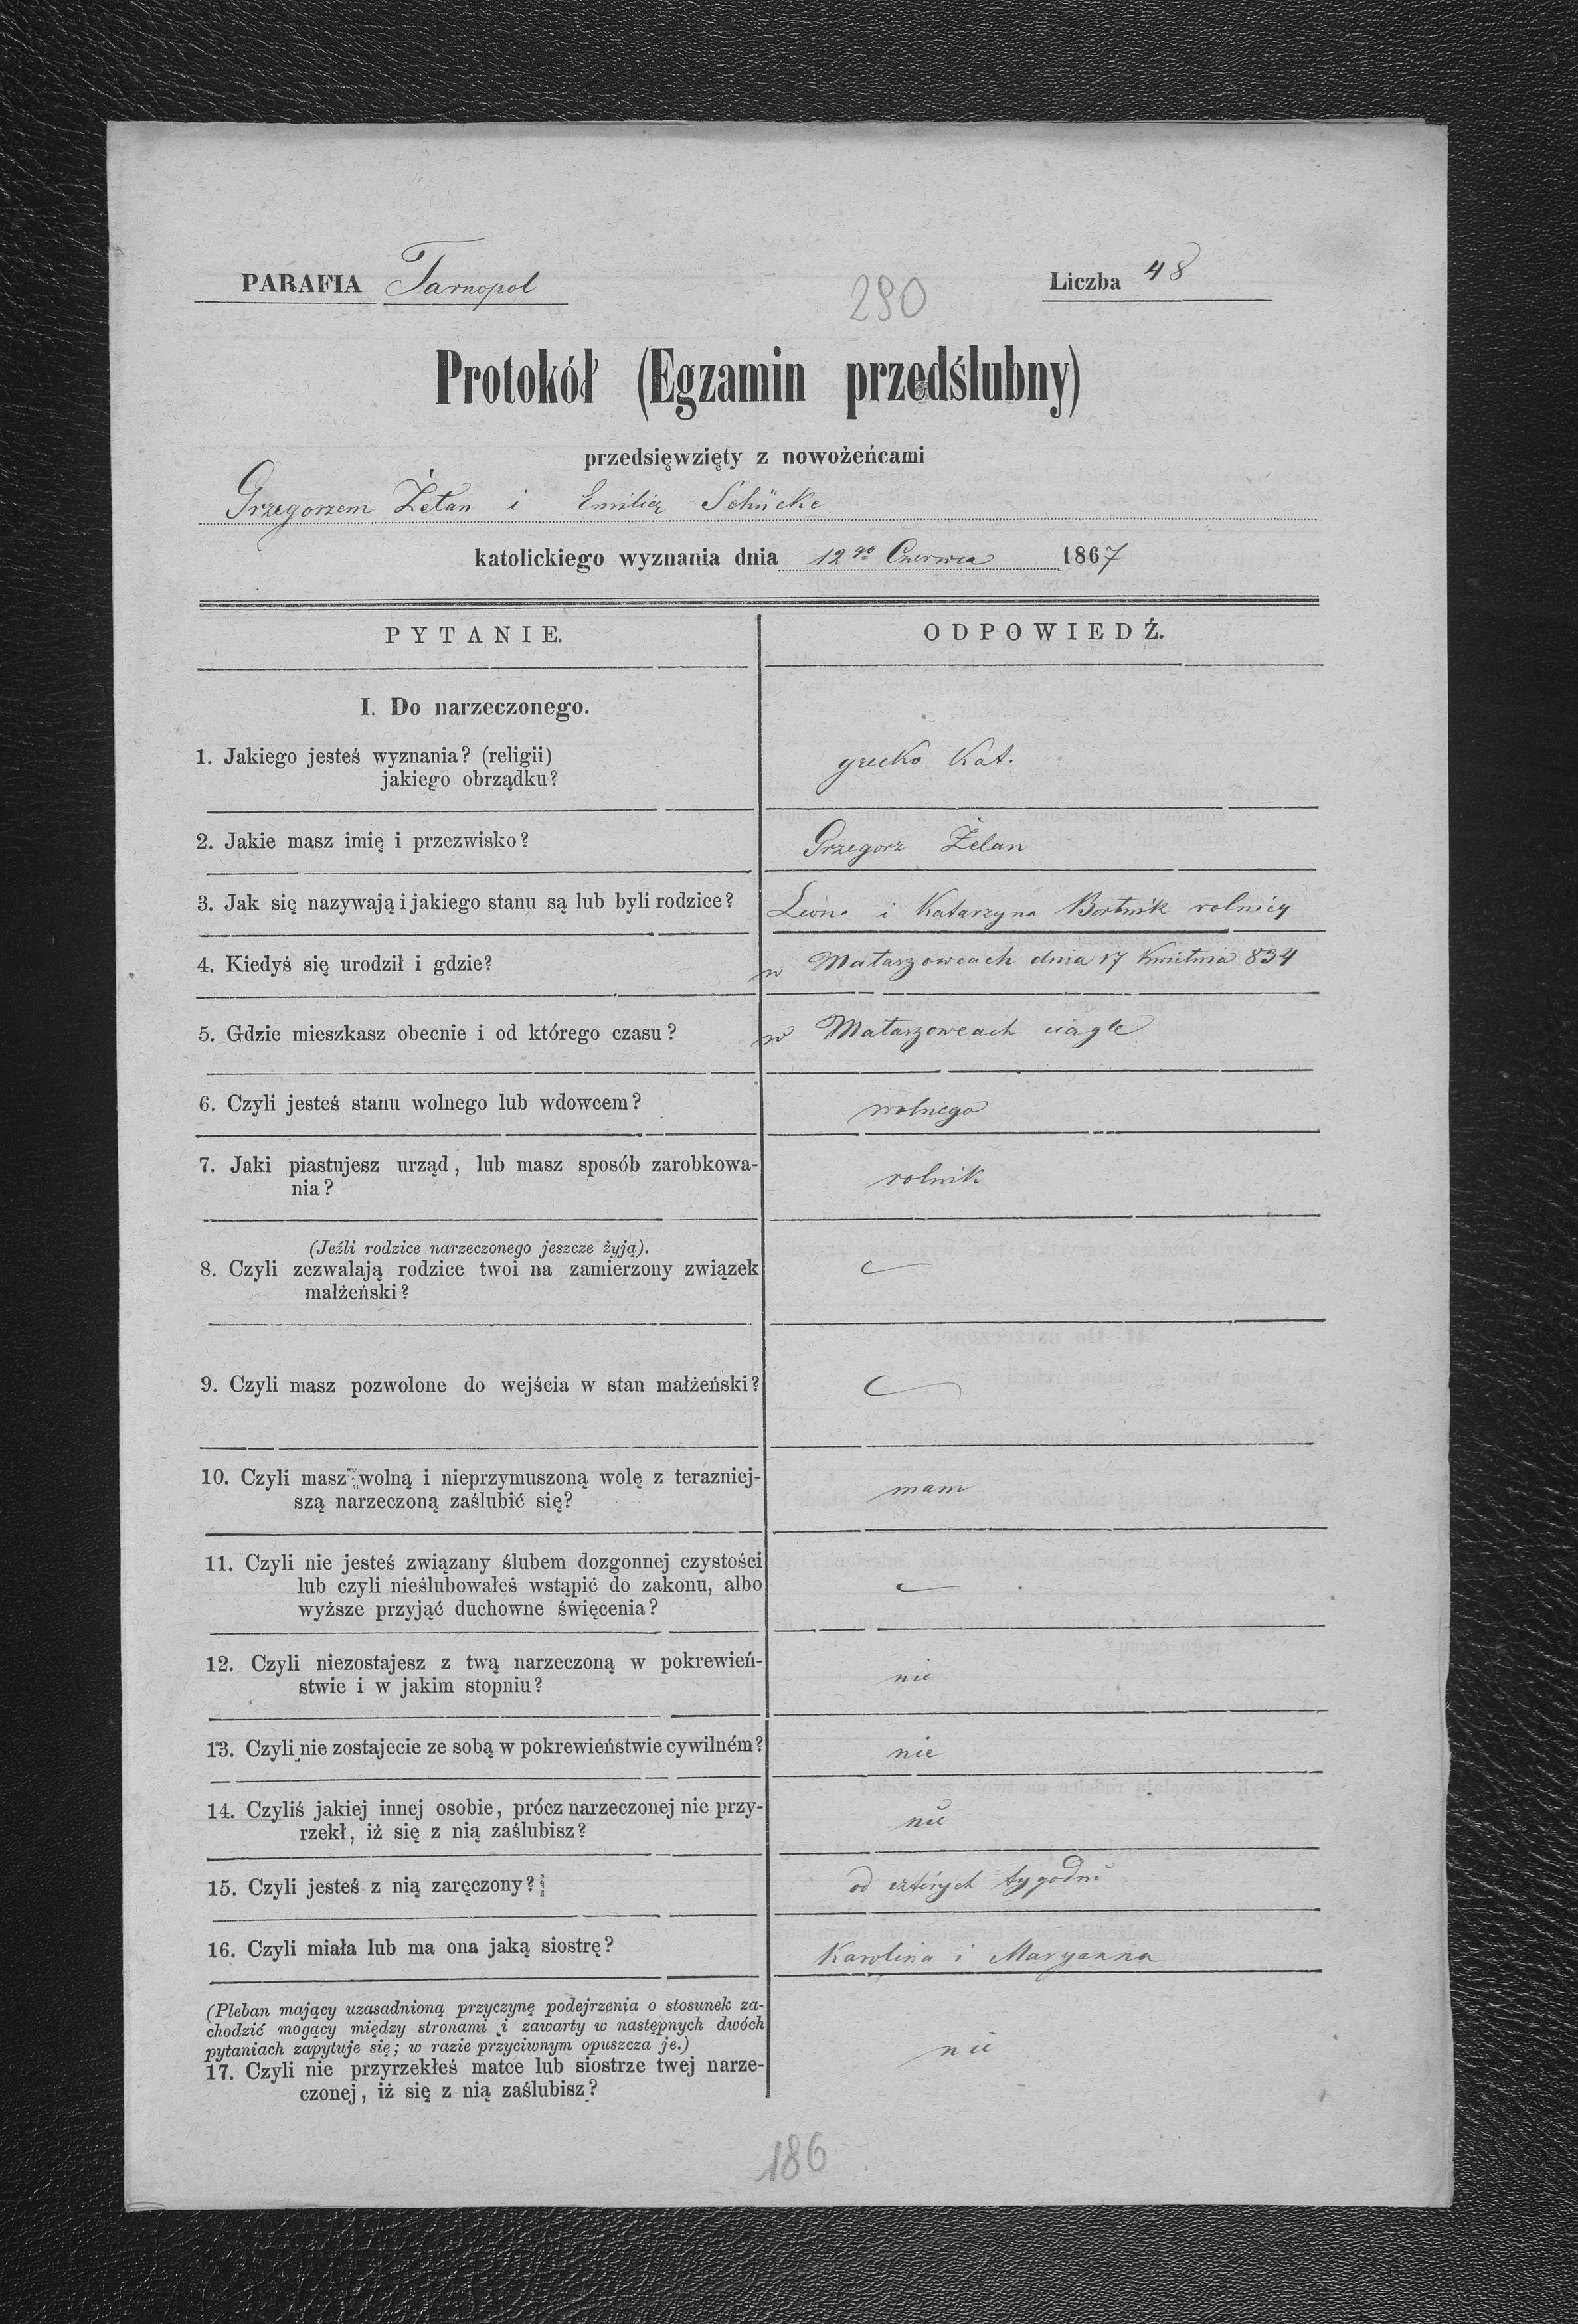 PARAFIA Tarnopol
280
Liczba 48
Protokół (Egzamin przedślubny)
przedsięwzięty z nowożeńcami
Grzegorzem Żelan i Emilią Schücke
katolickiego wyznania dnia 12go Czerwca 1867
PYTANIE.
ODPOWIEDŹ.
I. Do narzeczonego.
1. Jakiego jesteś wyznania? (religii)
jakiego obrządku?
grecko Kat.
2. Jakie masz imię i przezwisko?
Grzegorz Żelan
3. Jak się nazywają i jakiego stanu są lub byli rodzice?
Leona i Katarzyna Bortnik rolnicy
4. Kiedyś się urodził i gdzie?
w Mataszowcach dnia 17 Kwietnia 834
5. Gdzie mieszkasz obecnie i od którego czasu?
w Mataszowcach ciągle
6. Czyli jesteś stanu wolnego lub wdowcem?
wolnego
7. Jaki piastujesz urząd, lub masz sposób zarobkowa-
nia?
rolnik
(Jeźli rodzice narzeczonego jeszcze żyją).
8. Czyli zezwalają rodzice twoi na zamierzony związek
małżeński?
9. Czyli masz pozwolone do wejścia w stan małżeński?
10. Czyli masz wolną i nieprzymuszoną wolę z terazniej-
szą narzeczoną zaślubić się?
mam
11. Czyli nie jesteś związany ślubem dozgonnej czystości
lub czyli nieślubowałeś wstąpić do zakonu, albo
wyższe przyjąć duchowne święcenia?
12. Czyli niezostajesz z twą narzeczoną w pokrewień-
stwie i w jakim stopniu?
nie
13. Czyli nie zostajecie ze sobą w pokrewieństwie cywilném?
nie
14. Czyliś jakiej innej osobie, prócz narzeczonej nie przy-
rzekł, iż się z nią zaślubisz?
nie
15. Czyli jesteś z nią zaręczony?
od czterych tygodni
16. Czyli miała lub ma ona jaką siostrę?
Karolina i Maryanna
(Pleban mający uzasadnioną przyczynę podejrzenia o stosunek za-
chodzić mogący między stronami i zawarty w następnych dwóch
pytaniach zapytuje się; w razie przyciwnym opuszcza je.)
17. Czyli nie przyrzekłeś matce lub siostrze twej narze-
czonej, iż się z nią zaślubisz?
nie
186